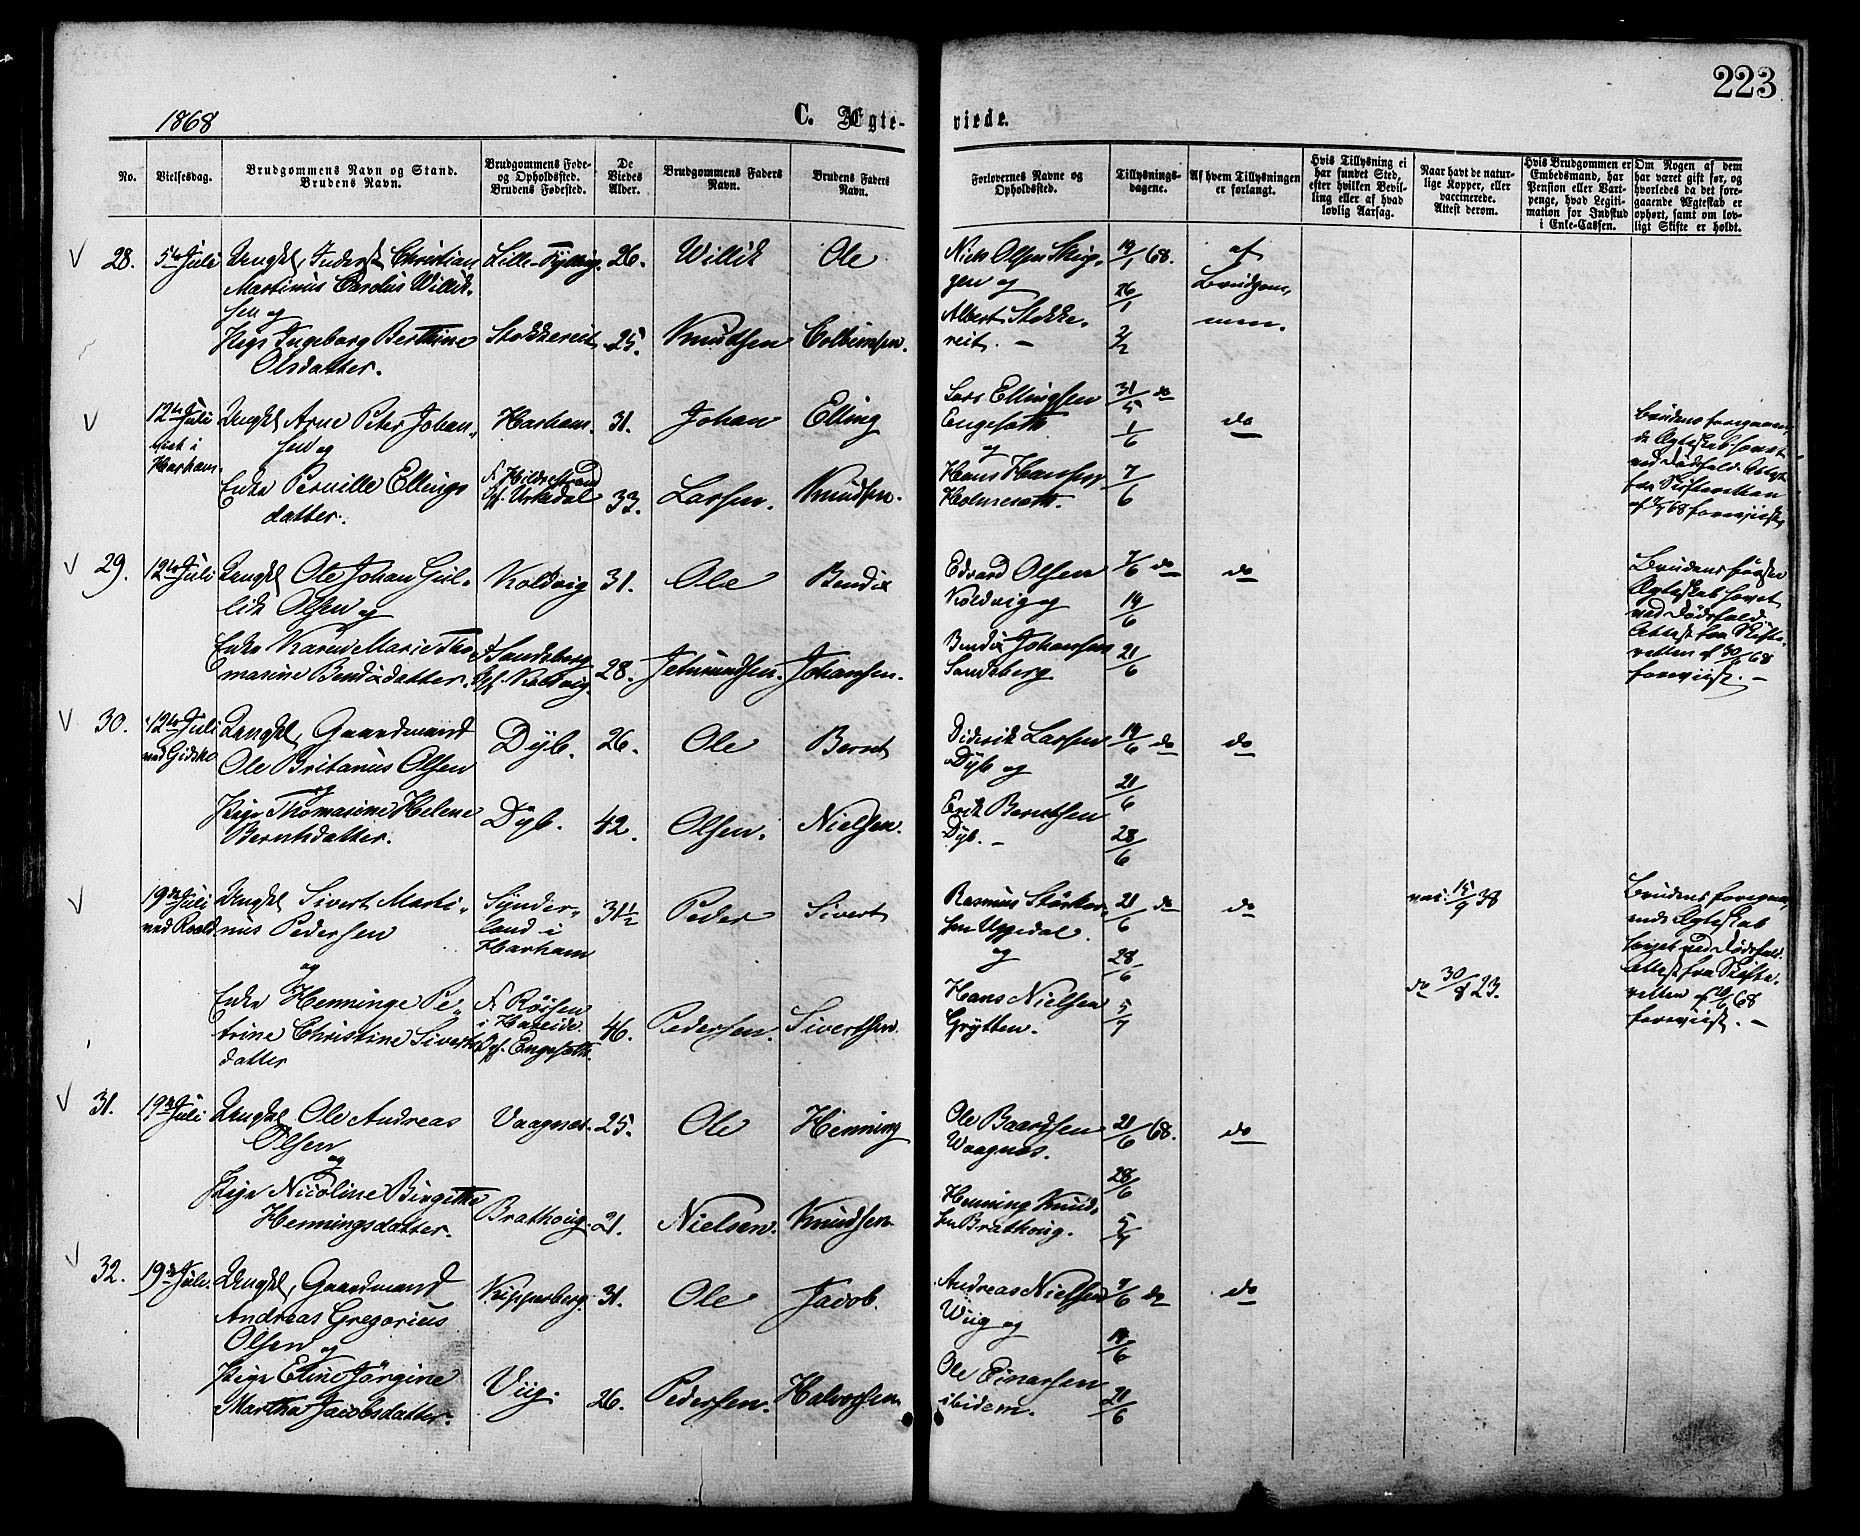 223
1868
C. Ægte-
viede.
No.
Vielsesdag.
Brudgommens Navn og Stand.
Brudens Navn.
Brudgommens Føde-
og Opholdssted.
Brudens Fødested.
De
Viedes
Alder.
Brudgommens Faders
Navn.
Brudens Faders
Navn.
Forlovernes Navne og
Opholdssted.
Tillysnings-
dagene.
Af hvem Tillysningen
er forlangt.
Hvis Tillysning ei
har fundet Sted,
efter hvilken Bevil-
ling eller af hvad
lovlig Aarsag.
Naar havt de natur-
lige Kopper, eller
vaccinerede.
Attest derom.
Hvis Brudgommen er
Embedsmand, har
Pension eller Vart-
penge, hvad Legiti-
mation for Indskud
i Enke-Cassen.
Om Nogen af dem
har været gift før, og
hvorledes da det fore-
gaaende Ægteskab er
ophørt, samt om lov-
ligt Skifte er holdt.
28. 5te Juli Ungkl, Christian
Martinus Carolus Willik-
sen og
Pige Ingeborg Berthine
Olsdatter.
26. Willik Ole
Stokkereit 25. Knudsen Colbensen.
Niels Olsen
gen og
Albert Stokke-
reit. -
19/1 68.
26/1
2/2
af
Brudgom-
men.
12te Juli
viet i
Harham
Ungkl Arne Peter Johan-
sen og
Enke Pernille Ellings
datter.
Harham. 31. Johan Elling
F. Hildrestrand
Opf. Urkedal 33. Larsen. Knudsen.
Lars Ellingsen
Engesæth
og
Hans Hansen
Holmesæth.
31/5 do
1/6
7/6
do
Brudens foregaaen-
de Ægteskab hævet
ved Dødsfald. Attest
fra Skifteretten
af 7/7 68 foreviist
29. 12te Juli Ungkl Ole Johan Gul-
lik Olsen og
Enke Karen Marie Tho-
masine Bendixdatter.
Koldvig 31. Ole Bendix
F. Sandsberg
Opf. Koldvig. 28. Jetmundsen. Johansen.
Edvard Olsen
Koldvig og
Bendix Johansen
Sandsberg
7/6 do
14/6
21/6
do
Brudens første
Ægteskab hævet
ved Dødsfald.
Attest fra Skifte-
retten af 30/6 68
foreviist. -
30. 12te Juli
ved Gidske
Ungkl, Gaardmand
Ole Britanus Olsen
og
Pige Thomasine Helene
Berntsdatter.
Dyb. 26. Ole Bernt
Dyb. 42. Olsen. Nielsen.
Diderik Larsen
Dyb og
Erik Berntsen
Dyb. -
14/6 do
21/6
28/6
do
19de Juli
ved Roald.
Ungkl Sivert Marti-
nus Pedersen
og
Enke Henninge Pe-
trine Christine Siverts
datter
Synder-
land i
Harham
31½ Peder Sivert
F. Røisen
i Hareide.
Opf. Engesæth. 46. Pedersen. Sivertsen.
Rasmus Størker-
sen Uppedal
og
Hans Nielsen
Grytten.
21/6 do
28/6
5/7
do
vac. 15/9 38
do 30/8 23.
Brudens foregaa-
ende Ægteskab
hævet ved Dødsfald.
Attest fra Skifte-
retten af 68
foreviist. -
31. 19de Juli Ungkl Ole Andreas
Olsen
og
Pige Nicoline Birgithe
Henningsdatter.
Vaagnæs. 25. Ole Henning
Brathoug. 21. Nielsen. Knudsen
Ole Baardsen
Waagnæs.
Henning Knud-
sen Brathoug.
21/6 68.
28/6
5/7
do
32. 19de Juli. Ungkl, Gaardmand
Andreas Gregorius
Olsen og
Pige Eline Jørgine
Martha Jacobsdatter.
Kipperberg. 31. Ole Jacob.
Viig. 26. Pedersen. Halvorsen
Andreas Nielsen
Wiig og
Ole Einarsen
ibidem.
7/6 do
14/6
21/6
do